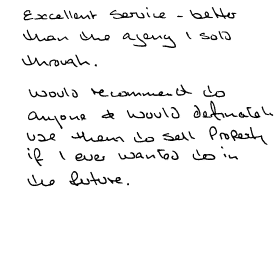 Excellent service - better
than the agency I sold
through.
Would recommend to
anyone & would definately
use them to sell Property
if I ever wanted to in
the future.